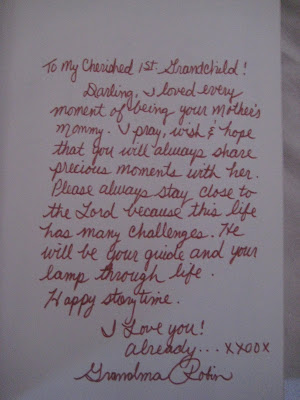 To My Cherished 1st Grandchild!
Darling, I loved every
moment of being your Mother's
Mommy. I pray, wish & hope
that you will always share
precious moments with her.
Please always stay close to
the Lord because this life
has many challenges. He
will be your guide and your
lamp through life.
Happy storytime.
I Love you!
already... xxoox
Grandma Robin